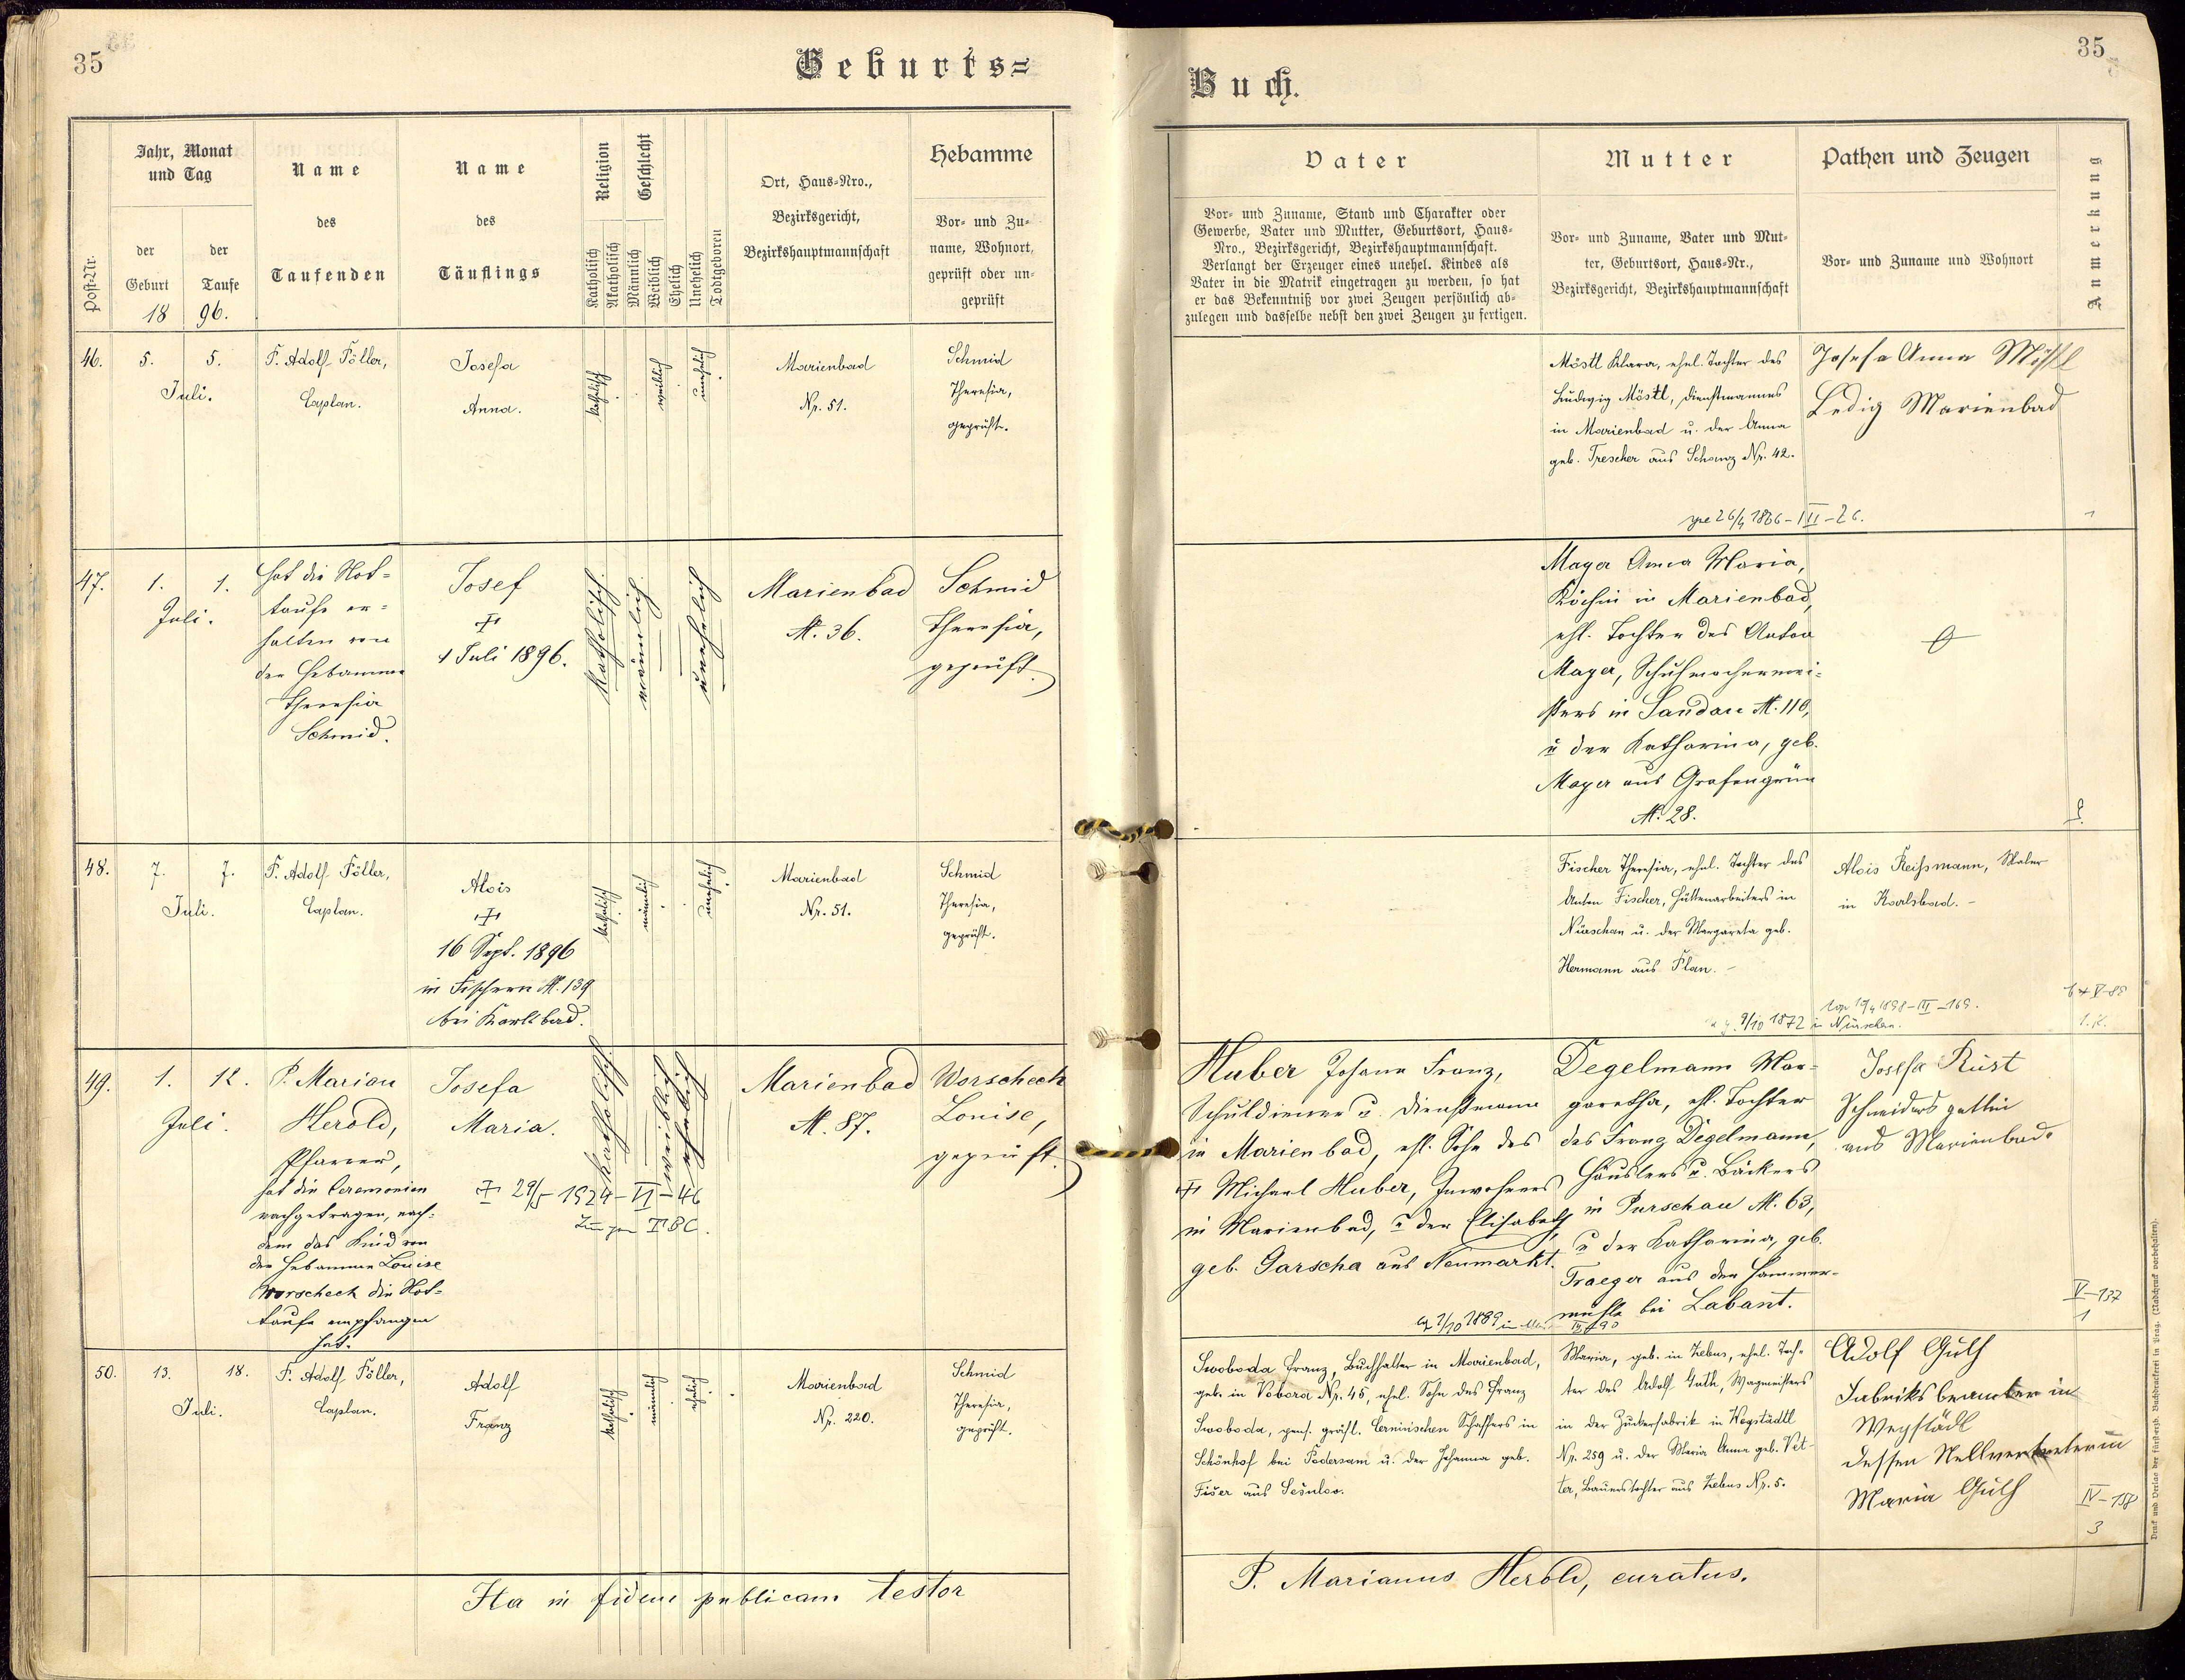 35
Geburts=
Buch.
35
Post-Nr.
Jahr, Monat
und Tag
der
Geburt
der
Taufe
18 96.
Name
des
Taufenden
Name
des
Täuflings
Religion
Katholisch
Akatholisch
Geschlecht
Männlich
Weiblich
Ehelich
Unehelich
Todtgeboren
Ort, Haus-Nro.,
Bezirksgericht,
Bezirkshauptmannschaft
Hebamme
Vor- und Zu-
name, Wohnort,
geprüft oder un-
geprüft
Vater
Vor- und Zuname, Stand und Charakter oder
Gewerbe, Vater und Mutter, Geburtsort, Haus-
Nro., Bezirksgericht, Bezirkshauptmannschaft.
Verlangt der Erzeuger eines unehel. Kindes als
Vater in die Matrik eingetragen zu werden, so hat
er das Bekenntniß vor zwei Zeugen persönlich ab-
zulegen und dasselbe nebst den zwei Zeugen zu fertigen.
Mutter
Vor- und Zuname, Vater und Mut-
ter, Geburtsort, Haus-Nr.,
Bezirksgericht, Bezirkshauptmannschaft
Pathen und Zeugen
Vor- und Zuname und Wohnort
Anmerkung
46.
5. 5.
Juli.
P. Adolf Pöller,
Caplan.
Josefa
Anna.
katholisch
weiblich
unehelich
Marienbad
Nr. 51.
Schmid
Theresia,
geprüft.
Möstl Klara, ehel. Tochter des
Ludwig Möstl, Dienstmannes
in Marienbad u. der Anna
geb. Trescher aus Schanz Nr. 42.
Josefa Anna Möstl
Ledig Marienbad
26/4 1866 - III - 26.
1
47.
1. 1.
Juli.
Hat die Not-
taufe er-
halten von
der Hebamme
Theresia
Schmid.
Josef
†
1 Juli 1896.
Katholisch
männlich
unehelich
Marienbad
N. 36.
Schmid
Theresia,
geprüft.
Mayer Anna Maria,
Köchin in Marienbad,
ehl. Tochter des Anton
Mayer, Schuhmachermei-
sters in Sandau N. 110,
u der Katharina, geb.
Mayer aus Grafengrün
N. 28.
48.
7. 7.
Juli.
P. Adolf Pöller,
Caplan.
Alois
†
16 Sept. 1896
in Fischern N. 139
bei Karlsbad.
katholisch
männlich
unehelich
Marienbad
Nr. 51.
Schmid
Theresia,
geprüft.
Fischer Theresia, ehel. Tochter des
Anton Fischer, Hüttenarbeiters in
Nürschan u. der Margareta geb.
Hermann aus Plan. -
Alois Reissmann, Maler
in Karlsbad. -
1898 - III - 169.
9/10 1872 in Nürschan.
49.
1. 12.
Juli.
P. Marian
Herold,
Pfarrer,
hat die Ceremonien
nachgetragen, nach-
dem das Kind von
der Hebamme Louise
Worscheck die Not-
taufe empfangen
hat.
Josefa
Maria.
† 29/5 1924 - VI - 46
Lungen TBC.
Katholisch
weiblich
ehelich
Marienbad
N. 87.
Worscheck
Louise,
geprüft.
Huber Johann Franz,
Schuldiener u. Dienstmann
in Marienbad, ehl. Sohn des
† Michael Huber, Inwohners
in Marienbad, u der Elisabeth,
geb. Garscha aus Neumarkt.
Degelmann Mar-
garetha, ehl. Tochter
des Franz Degelmann,
Häuslers u. Bäckers
in Purschau N. 63,
u der Katharina, geb.
Traeger aus der Hammer-
mühle bei Labant.
Josefa Rüst
Schneiders gattin
aus Marienbad.
V-137
1
50.
13. 18.
Juli.
P. Adolf Pöller,
Caplan.
Adolf
Franz
katholisch
männlich
ehelich
Marienbad
Nr. 220.
Schmid
Theresia,
geprüft.
Swoboda Franz, Buchhalter in Marienbad,
geb. in Vobora Nr. 45, ehel. Sohn des Franz
Swoboda, pens. gräfl. Cerninschen Schaffers in
Schönhof bei Podersam u. der Johanna geb.
Fišer aus
Maria, geb. in Zebus, ehel. Toch-
ter des Adolf Guth, Wagmeisters
in der Zuckerfabrik in Wegstädtl
Nr. 259 u. der Maria Anna geb. Vet-
ter, Bauerstochter aus Zebus Nr. 5.
Adolf Guth
Fabriksbeamter in
Wegstädl
dessen Stellvertreterin
Maria Guth
IV-158
3
Ita in fidem publicam testor
P. Marianus Herold, curatus.
Druck und Verlag der fürsterzb. Buchdruckerei in Prag. (Nachdruck vorbehalten).